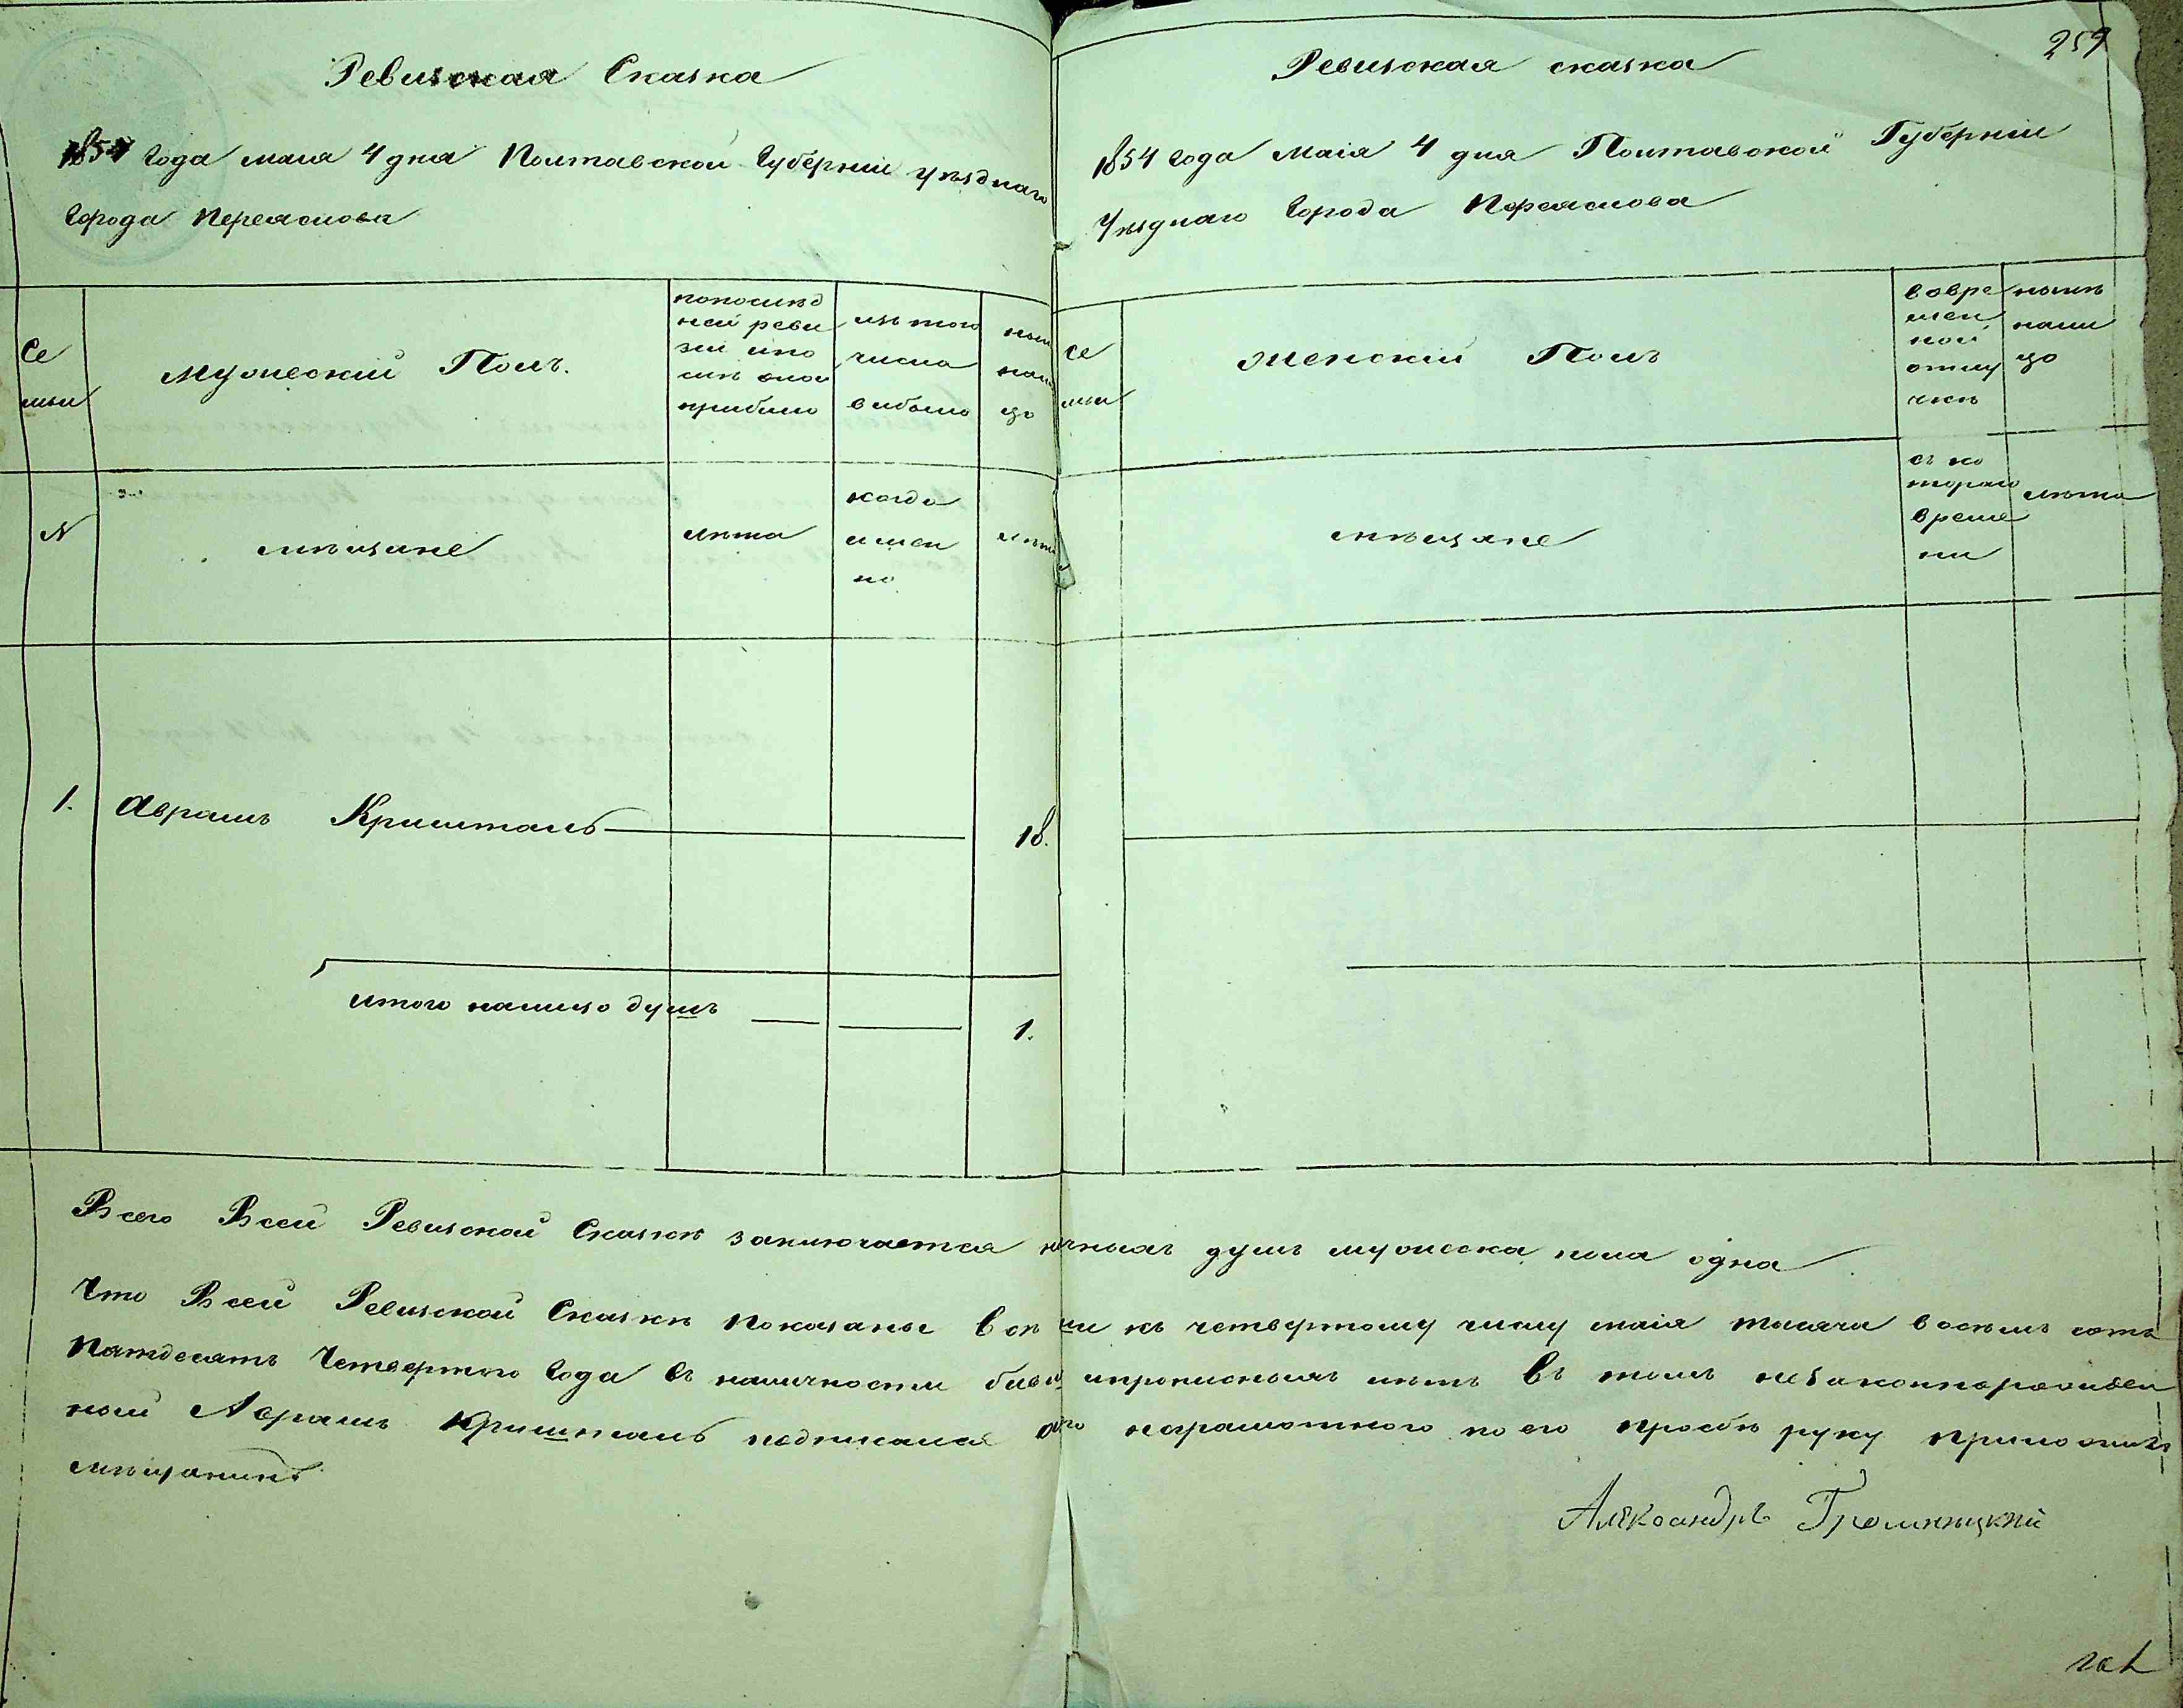 Ревизская Сказка
1854 года маия 4 дня Полтавской Губерніи уѣзднаго
города Переяслова
Се
мьи
мужескій Полъ.
попослѣд
ней реви
зіи ипо
слѣ оной
прибыло
изъ того
числа
выбыло
ныне
нали
цо
N
мѣщане
лѣта
когда
имен
но
лѣта
1. Аврамъ Криштань 18.
итого налицо душъ 1.
259
Ревизская сказка
1854 года Маія 4 дня Полтавской Губерніи
Уѣзднаго города Переяслова
Се
мьи
Женскій Полъ
вовре
мен
ной
отлу
чкѣ
нынѣ
нали
цо
мѣщане
съ ко
тораго
време
ни
лѣта
Всего Всей Ревизской Сказкѣ заключается душъ мужеска пола одна
Что Всей Ревизской Сказкѣ показаны всѣ къ четвертому числу маія тысяча восемь сотъ
Пятдесятъ Четвертого Года въ наличности ипрописныхъ нѣтъ Въ томъ незаконнорожден
ный Аврамъ Криштань неграмотного по его прозбѣ руку приложилъ
мѣщанинъ
Александръ Громницкій